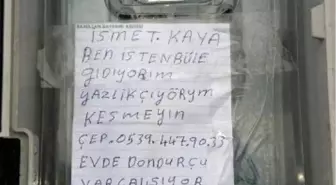 İSMET. KAYA
BEN İSTENBÜLE
GİDİYORIM
YAZLIKÇIYÖRYM
KESMEYİN
ÇEP. 0539.447.90.33
EVDE DONDURÇU
VARÇALIŞIYOR